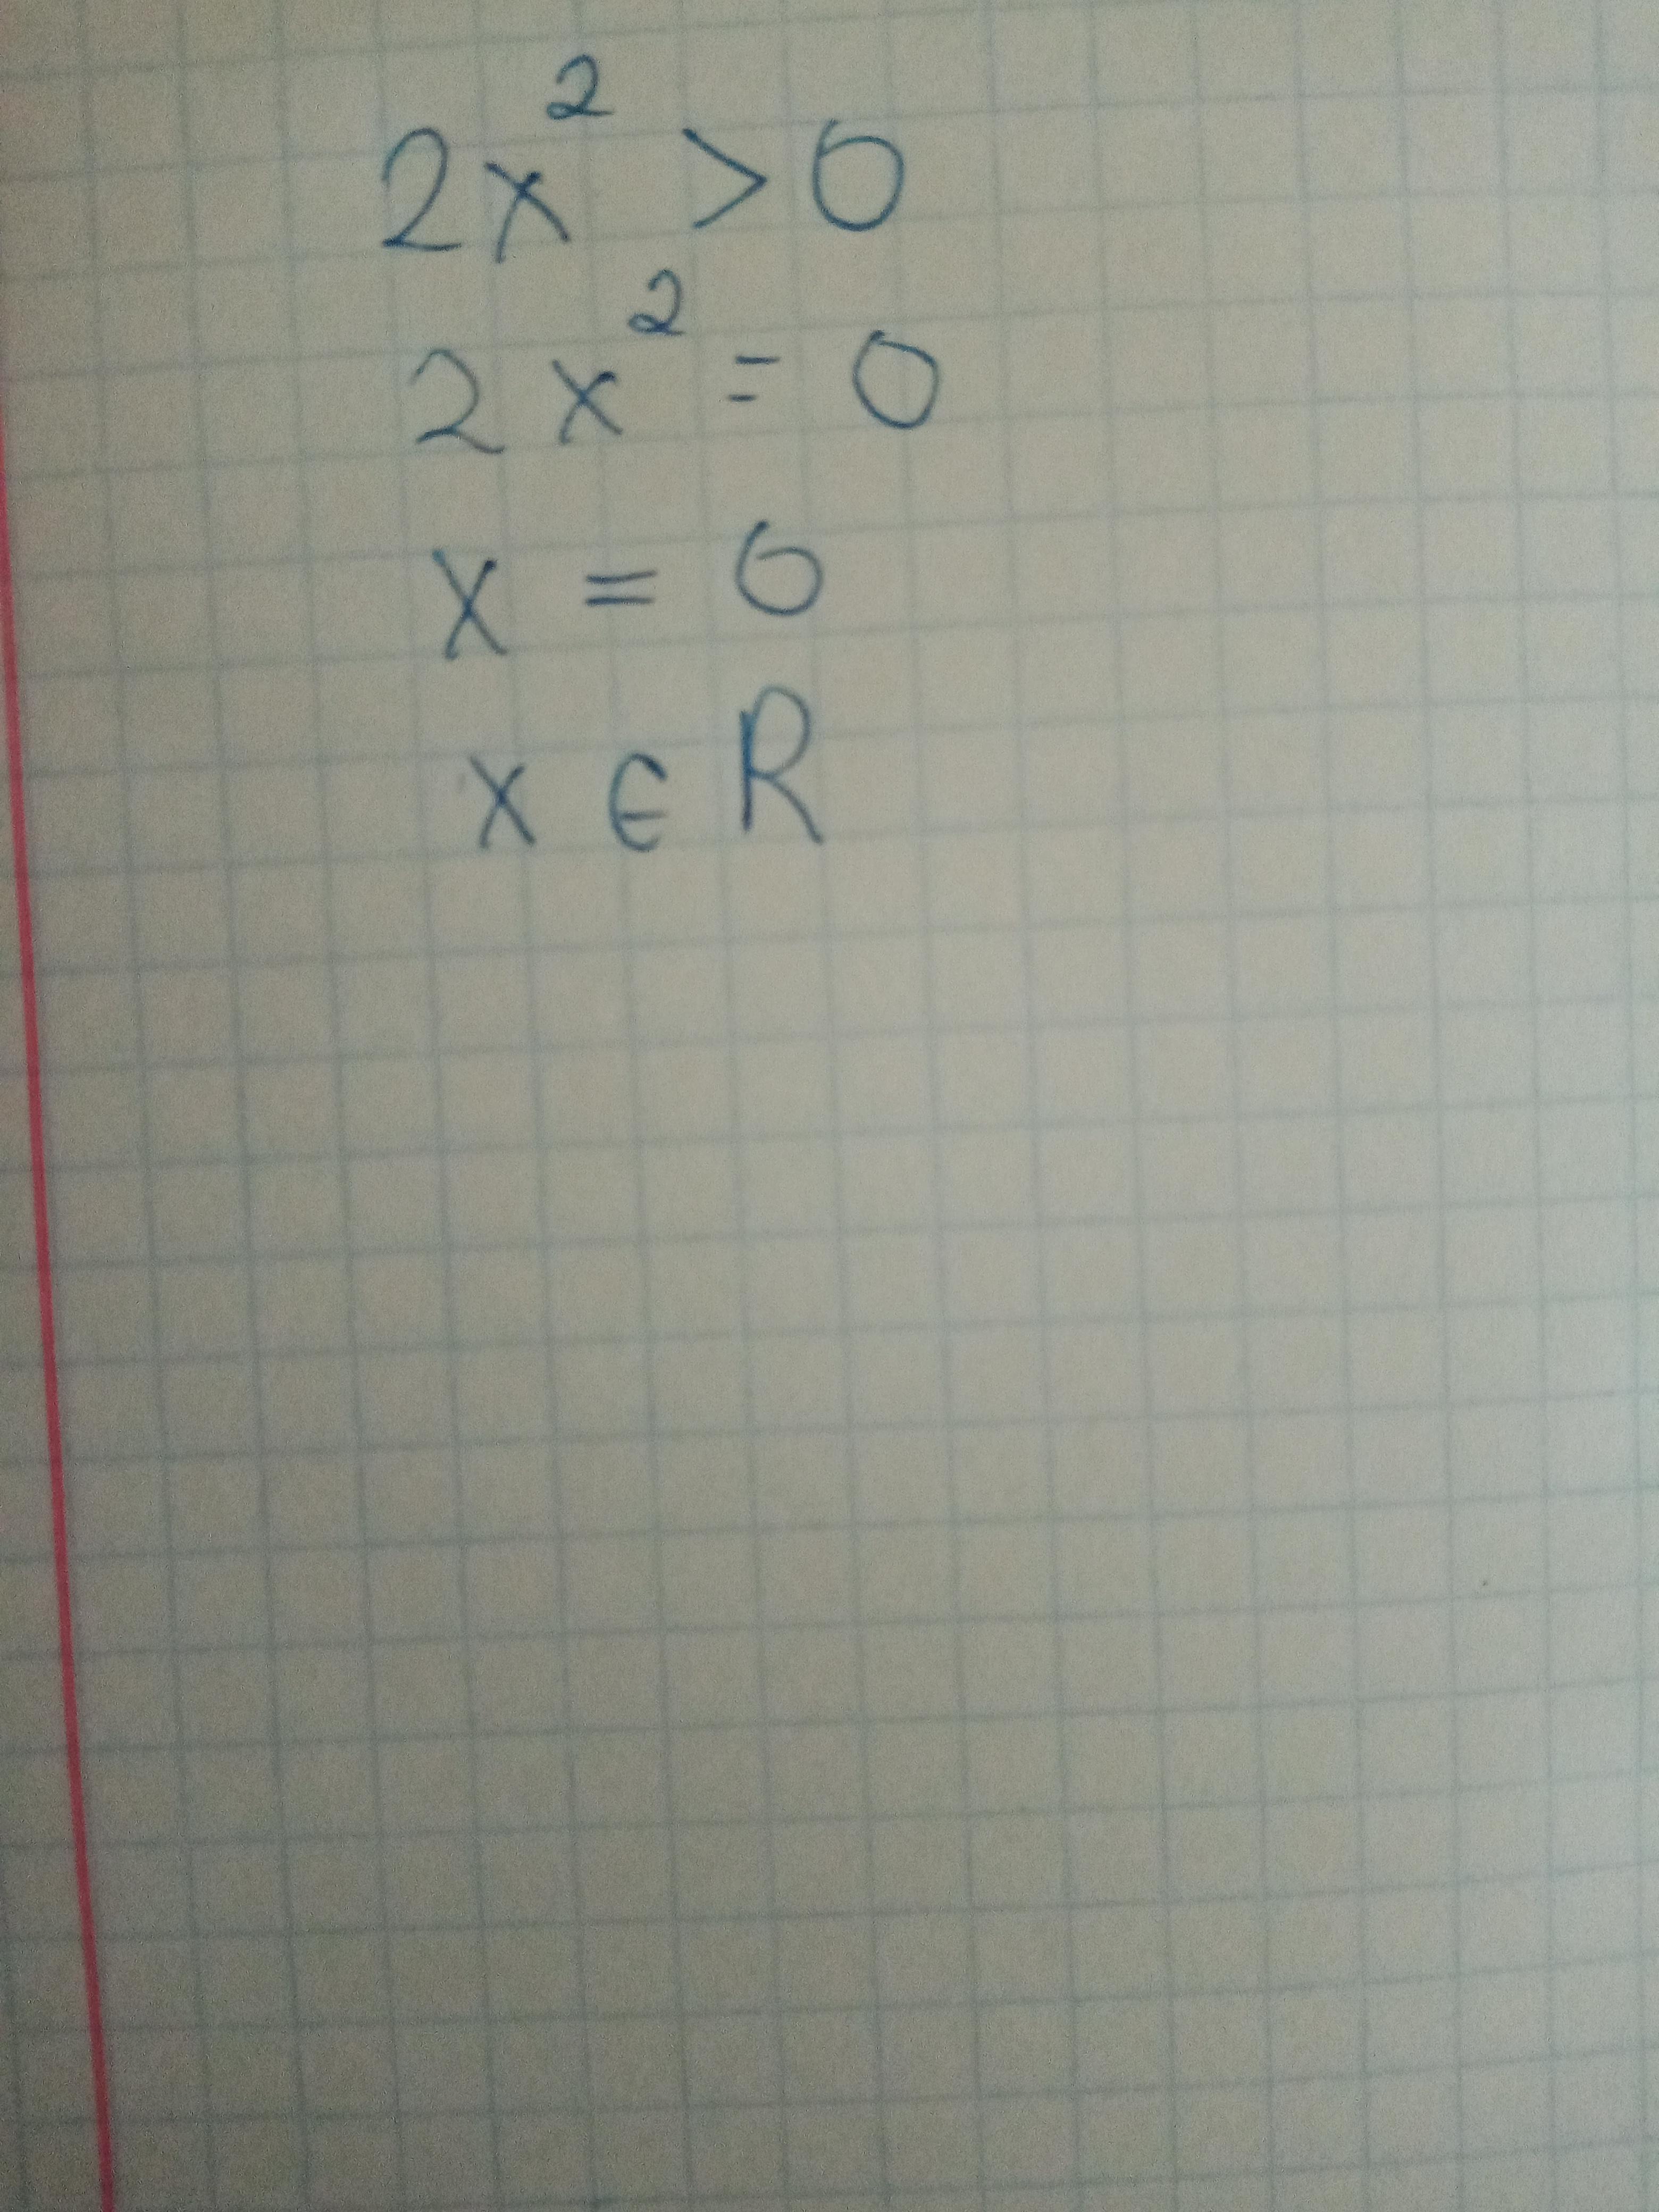 2x² > 0
2x² = 0
x = 0
x ∈ R